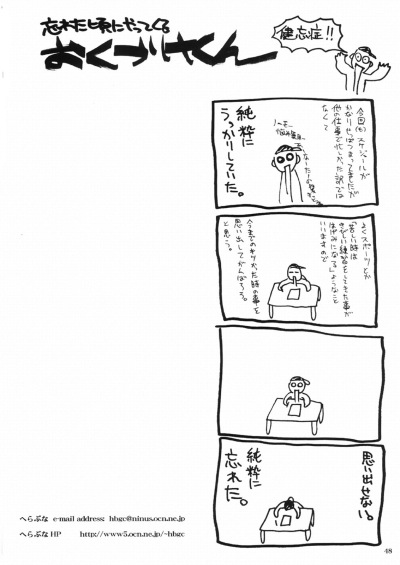 忘れた頃にやってくる
おくづけくん
健忘症!!
今回(も)スケジュールが
かなりせっぱつまってましたが
他の仕事で忙しかった訳では
なくて
純粋に
うっかりしていた。
よくスポーツとか
「苦しい時は
きびしい練習をしてきた事が
はげみになる」ようなこと
いいますので
今までのキツかった時の事を
思い出してがんばろう。
と思う。
思い出せない。
純粋に
忘れた。
へらぶな e-mail address: hbgc@ninus.ocn.ne.jp
へらぶなHP http://www5.ocn.ne.jp/~hbgc
48